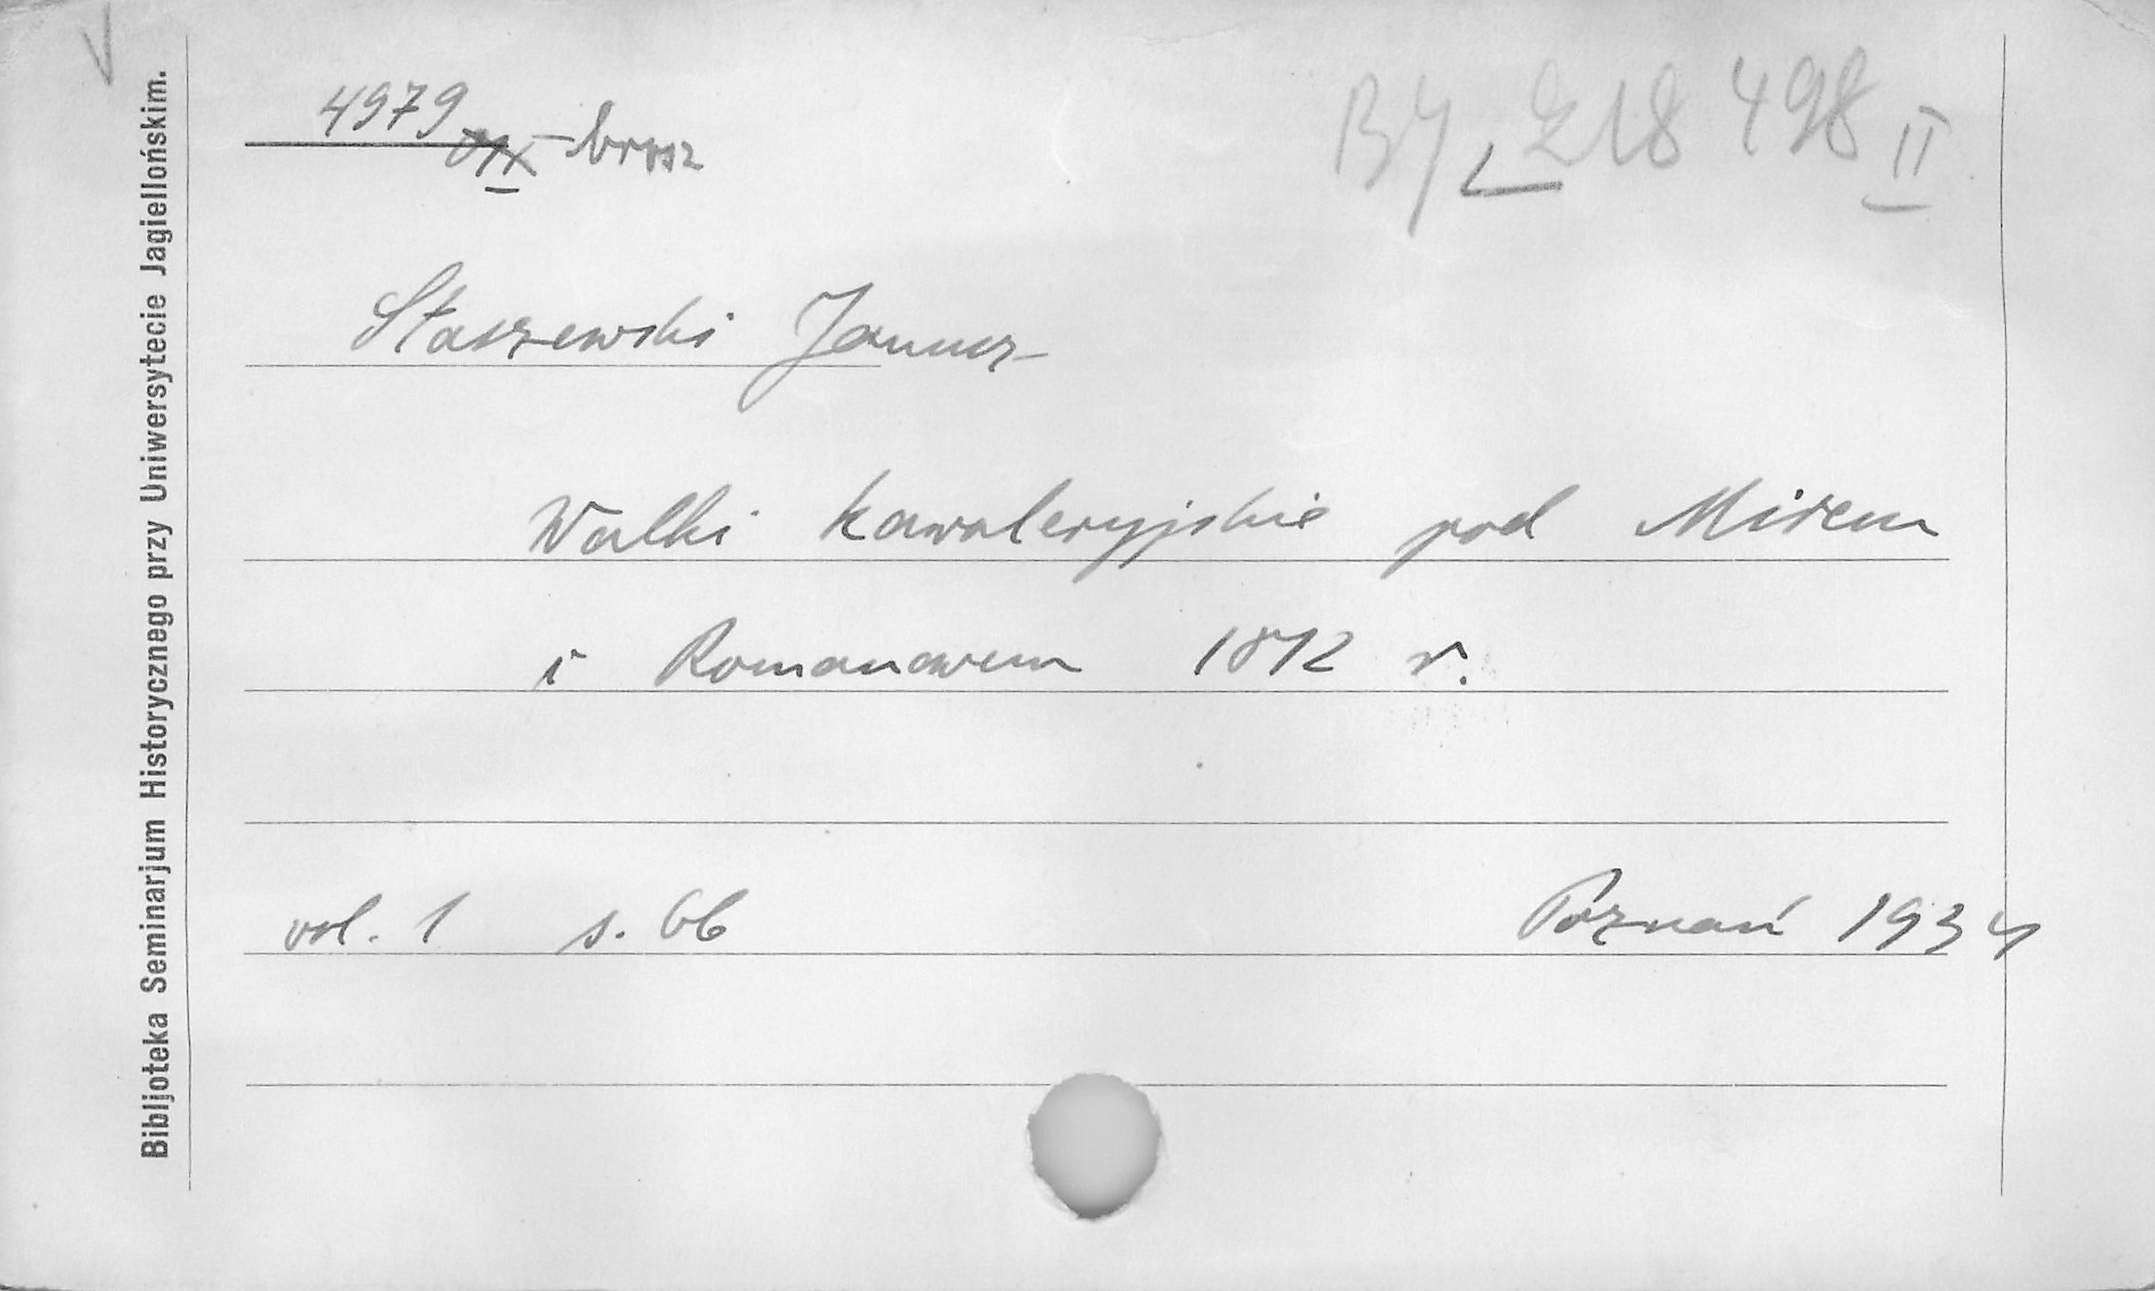 4979 IX - brosz
BJ Ż 18 498 II
Staszewski Janusz
Walki kawaleryjskie pod Mirem
i Romanowem 1812 r.
vol. 1 s. 66 Poznań 1934
Bibljoteka Seminarjum Historycznego przy Uniwersytecie Jagiellońskim.